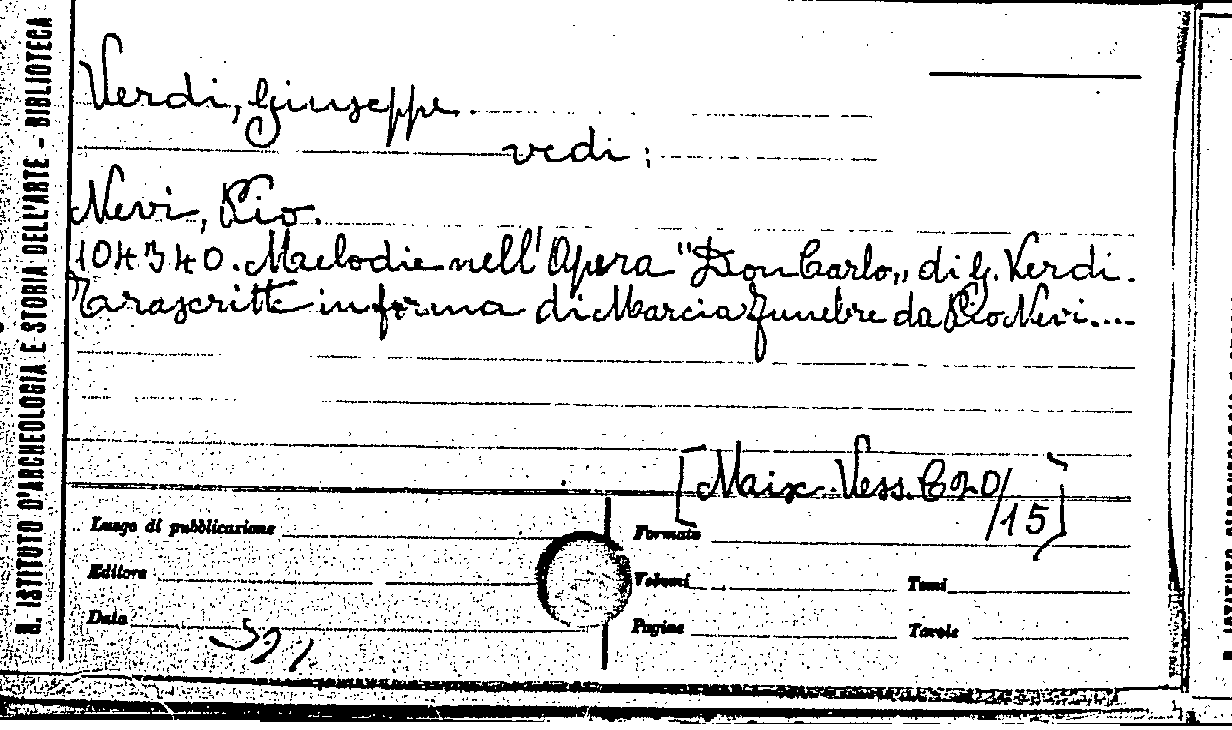 R. ISTITUTO D'ARCHEOLOGIA E STORIA DELL'ARTE - BIBLIOTECA
Verdi, Giuseppe.
vedi:
Nevi, Pio.
104340. Melodie nell'Opera "Don Carlo" di G. Verdi.
Trascritte in forma di Marcia funebre da Pio Nevi....
[Maix. Vess. C20/
15]
Luogo di pubblicazione
Formato
Editore
Volumi
Tomi
Data
Pagine
Tavole